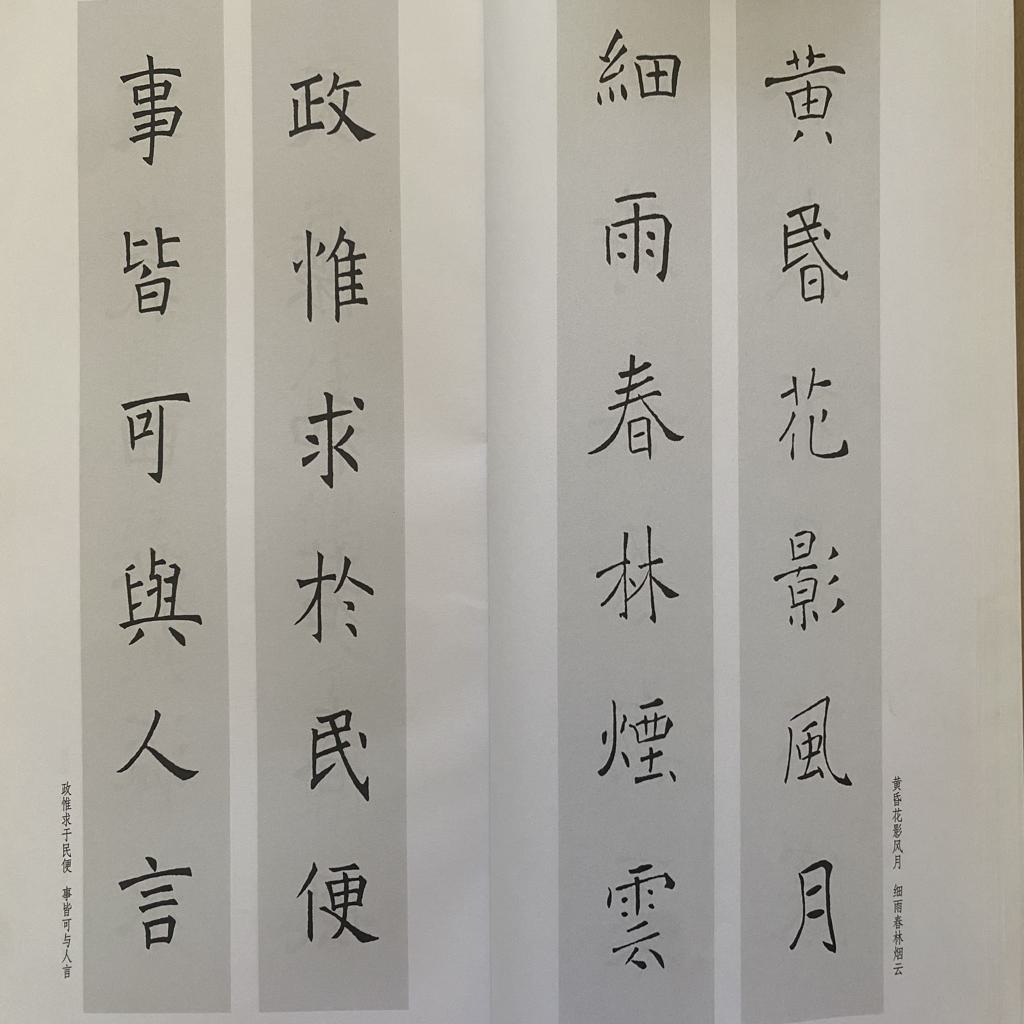 黄昬花影風月
細雨春林煙雲
黄昏花影风月　细雨春林烟云
政惟求於民便
事皆可與人言
政惟求于民便　事皆可与人言